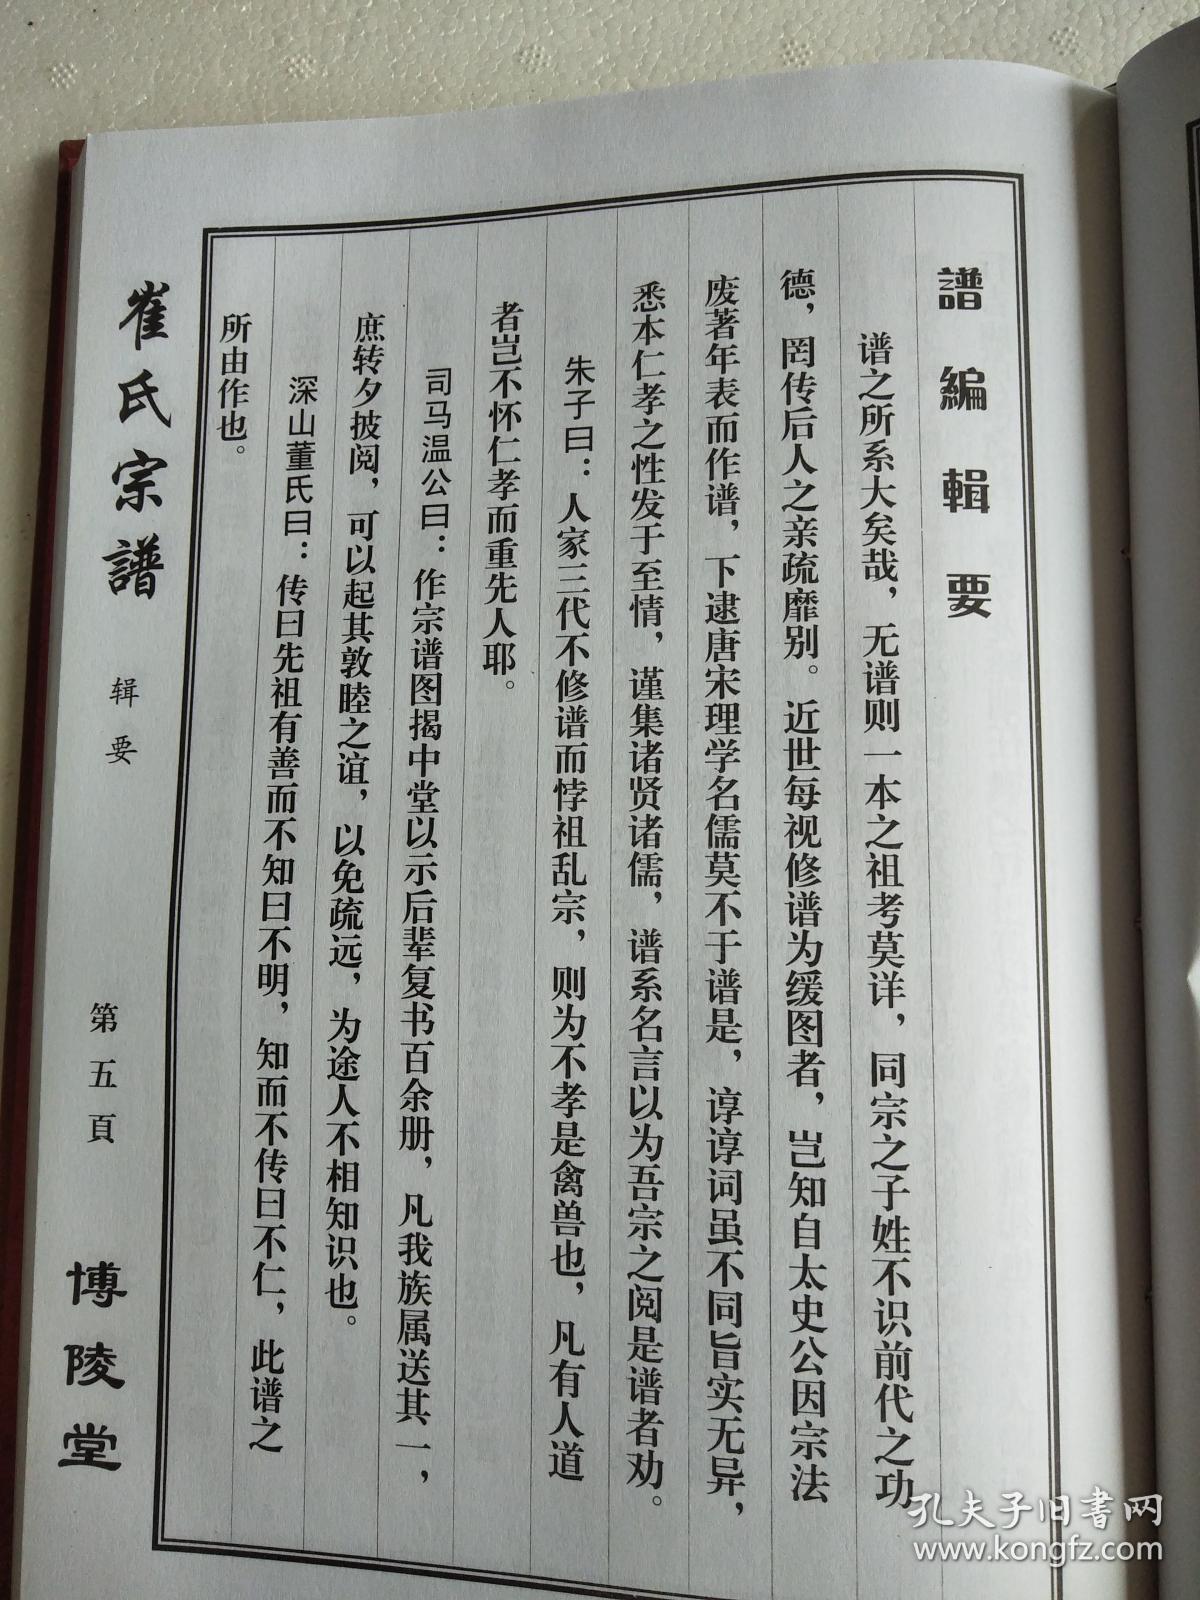 譜編輯要
谱之所系大矣哉，无谱则一本之祖考莫详，同宗之子姓不识前代之功
德，罔传后人之亲疏靡别。近世每视修谱为缓图者，岂知自太史公因宗法
废著年表而作谱，下逮唐宋理学名儒莫不于谱是，谆谆词虽不同旨实无异，
悉本仁孝之性发于至情，谨集诸贤诸儒，谱系名言以为吾宗之阅是谱者劝。
朱子曰：人家三代不修谱而悖祖乱宗，则为不孝是禽兽也，凡有人道
者岂不怀仁孝而重先人耶。
司马温公曰：作宗谱图揭中堂以示后辈复书百余册，凡我族属送其一，
庶转夕披阅，可以起其敦睦之谊，以免疏远，为途人不相知识也。
深山董氏曰：传曰先祖有善而不知曰不明，知而不传曰不仁，此谱之
所由作也。
崔氏宗譜
辑要
第五頁
博陵堂
孔夫子旧书网
www.kongfz.com